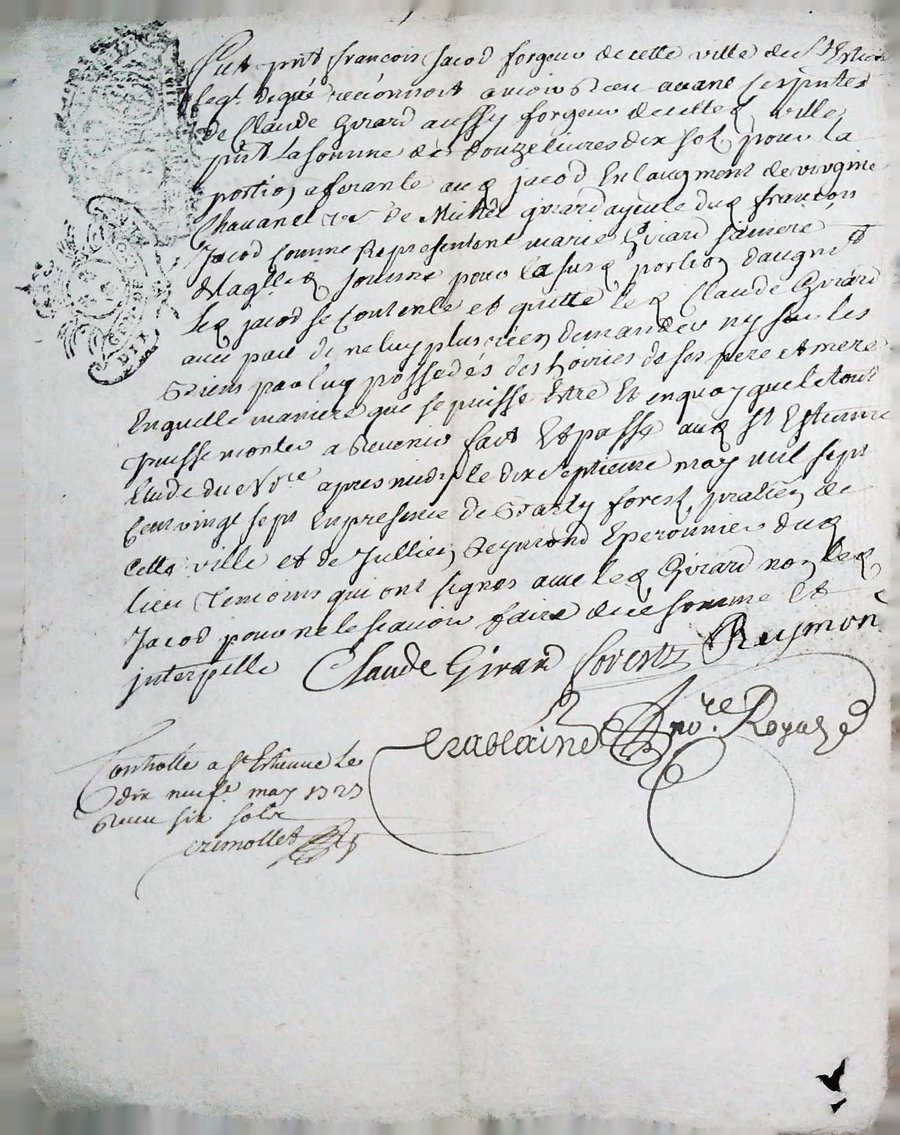 DIX
Fut prnt francois Jacod forgeur de cette ville de St Estienne
leql de gré reconnoit avoir receu avant ces pntes
de Claude Girard aussy forgeur de cette ville
prnt La somme de douze livres dix sol pour la
portion aferante aud Jacod En laugment de virginie
Chavanel de Michel girard ayeule dud francois
Jacod comme Representant marie Girard sa mere
de laqlle somme pour la susd portion daugmt
led Jacod se Contente et quitte led Claude Girard
avec pact de ne luy plus rien demander ny sur les
Biens par luy possedés des hoiries de ses pere et mere
En quelle maniere que se puisse Estre Et en quoy que le tout
puisse monter a Revenir fait Et passé aud St Estienne
Etude du nre apres midy le dix septieme may mil sept
Cent vingt sept En presence de forest praticien de
cette ville et de Jullien Reymond Eperonnier dud
lieu Temoins qui ont signés avec led Girard non led
Jacod pour ne le scavoir faire de ce sommé Et
interpellé Claude Girard forest Reymon
nore Royal
Controllé a St Estienne le
dix neufe may 1727
Receu six sols